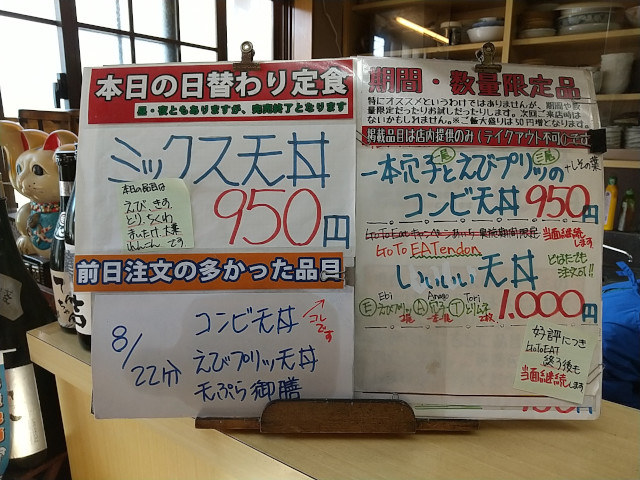 本日の日替わり定食
昼・夜ともありますが、完売終了となります
ミックス天丼
950円
本日の品目は
えび、きす、
とり、ちくわ
まいたけ、大葉
れんこん です
前日注文の多かった品目
8/22分
コンビ天丼
えびプリッツ天丼
天ぷら御膳
コレです
期間・数量限定品
特にオススメというわけではありませんが、期間や数
量限定だったりお試しだったりします。次回ご来店時は
ないかもしれません。※ご飯大盛りは50円増となります。
掲載品目は店内提供のみ(テイクアウト不可)です
一本穴子とえびプリッツの
+しその葉
コンビ天丼 950円
当面継続します
GoTo EATendon
いいいい天丼
どなたでも
注文可!!
Ebi Anago Tori
1.000円
好評につき
GoToEAT
終了後も
当面継続します